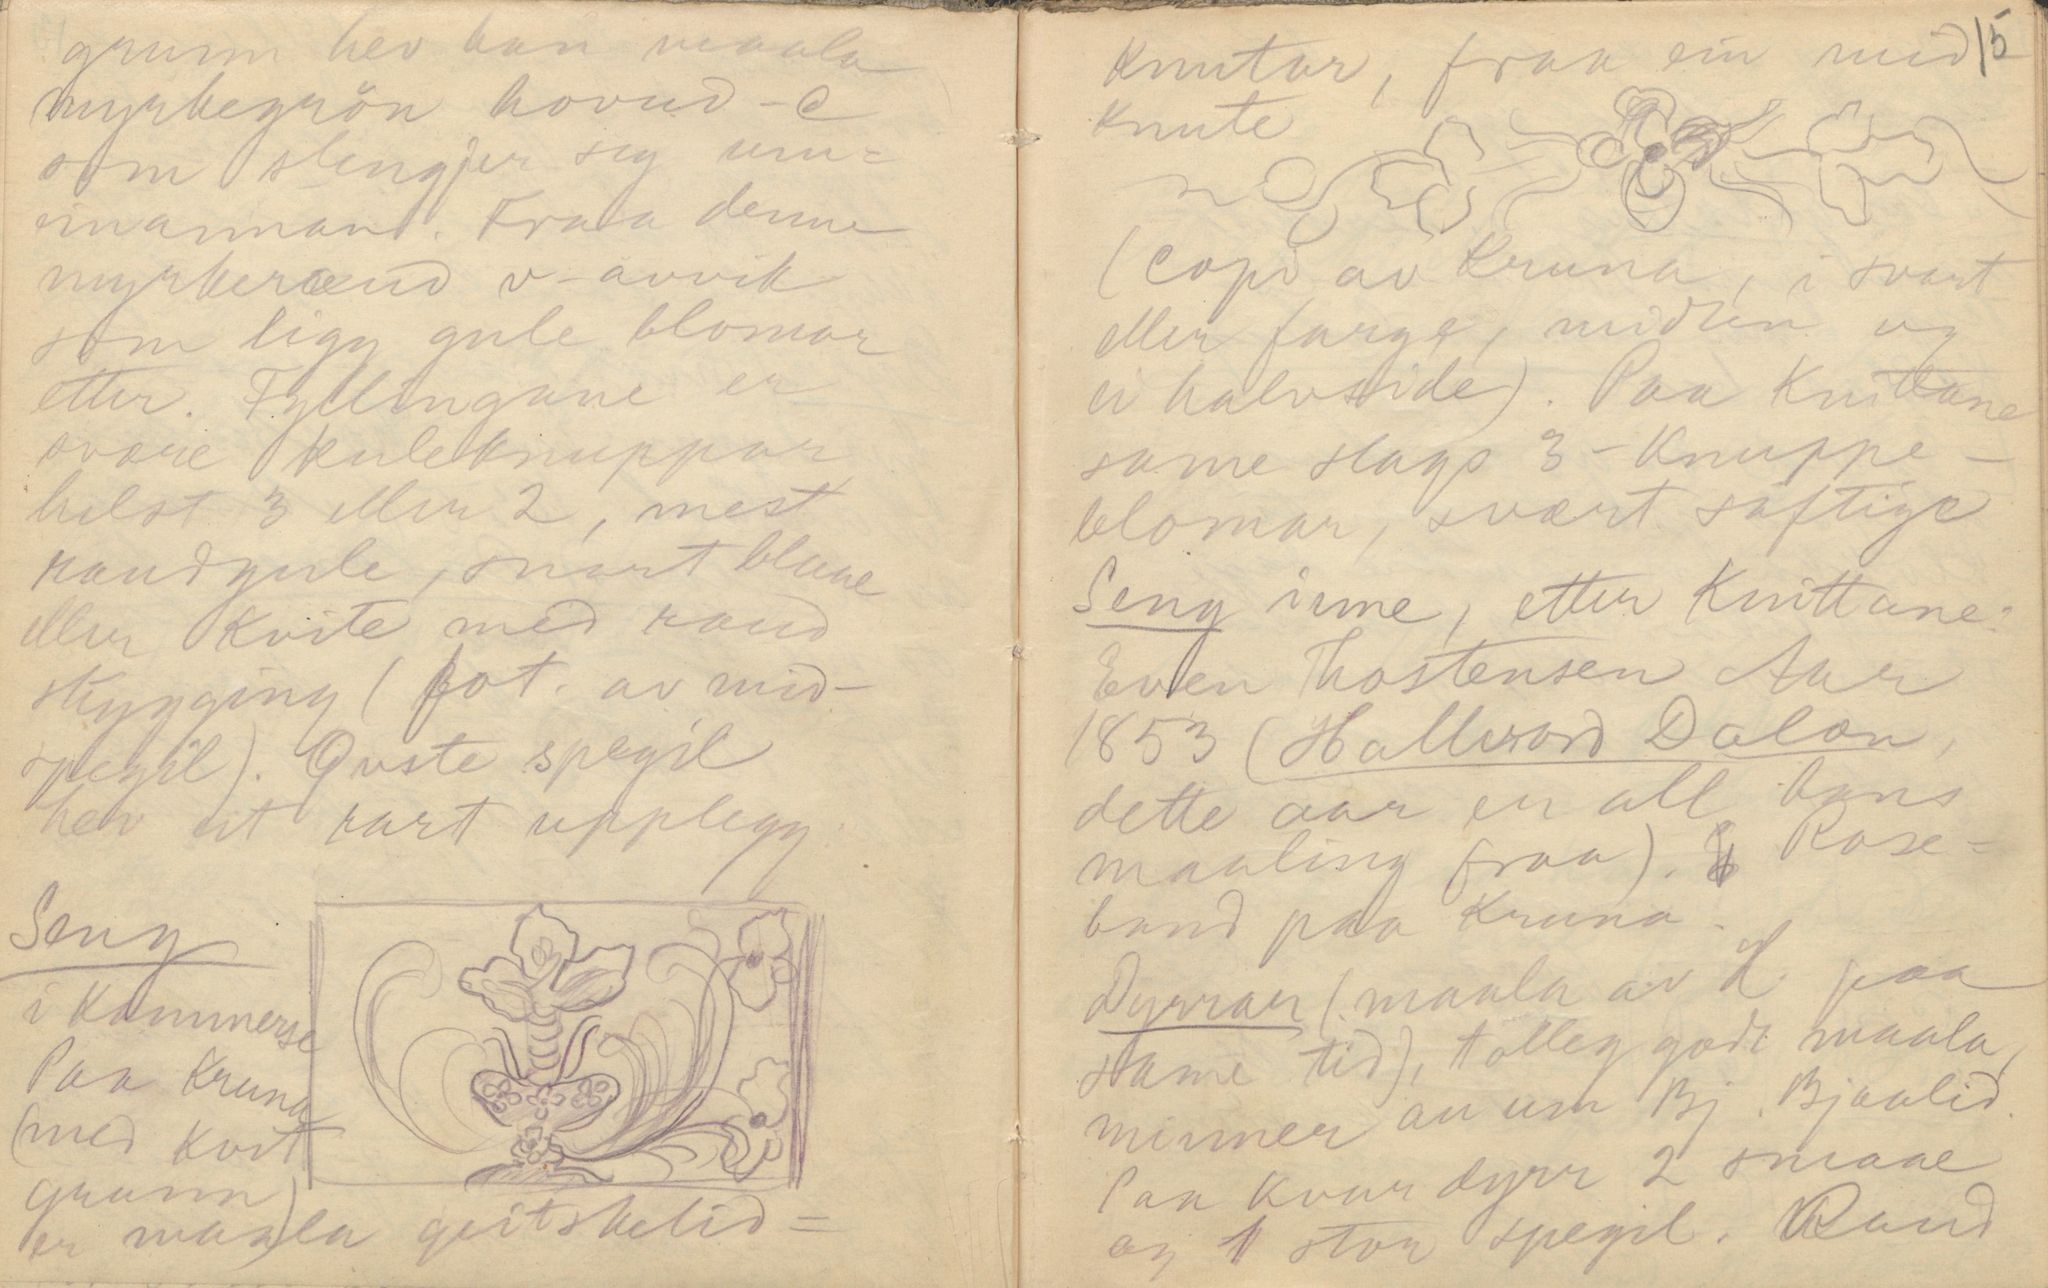 grunn hev han maala
myrkegrön hovud-C
som slengjer seg um=
einannan. Fraa denne
myrkeraud v-avvik
som ligg gule blomar
etter. Fyllingane er
svære kuleknuppar
helst 3 eller 2, mest
raudgule, snart blaae
eller kvite med raud
skygging (fot. av mid-
spegil). Övste spegil
hev eit rart upplegg:
Seng
i kammerse
Paa kruna
(med kvit
grunn)
er maala geitskelid=
15
knutar, fraa ein mid
knute
(Copi av kruna, i svart
eller farge, midten og
ei halvside). Paa knittane
same slags 3-knuppe-
blomar, svært saftige
Seng inne, etter knittane:
Even Thostensen Aar
1853 (Hallvord Dalen,
dette aar er all hans
maaling fraa). Rose-
band paa kruna.
Dyrrar (maala av H. paa
same tid), tolleg godt maala,
minner au um Bj. Bjaalid.
Paa kvar dyrr 2 smaae
og 1 stor spegil. Raud